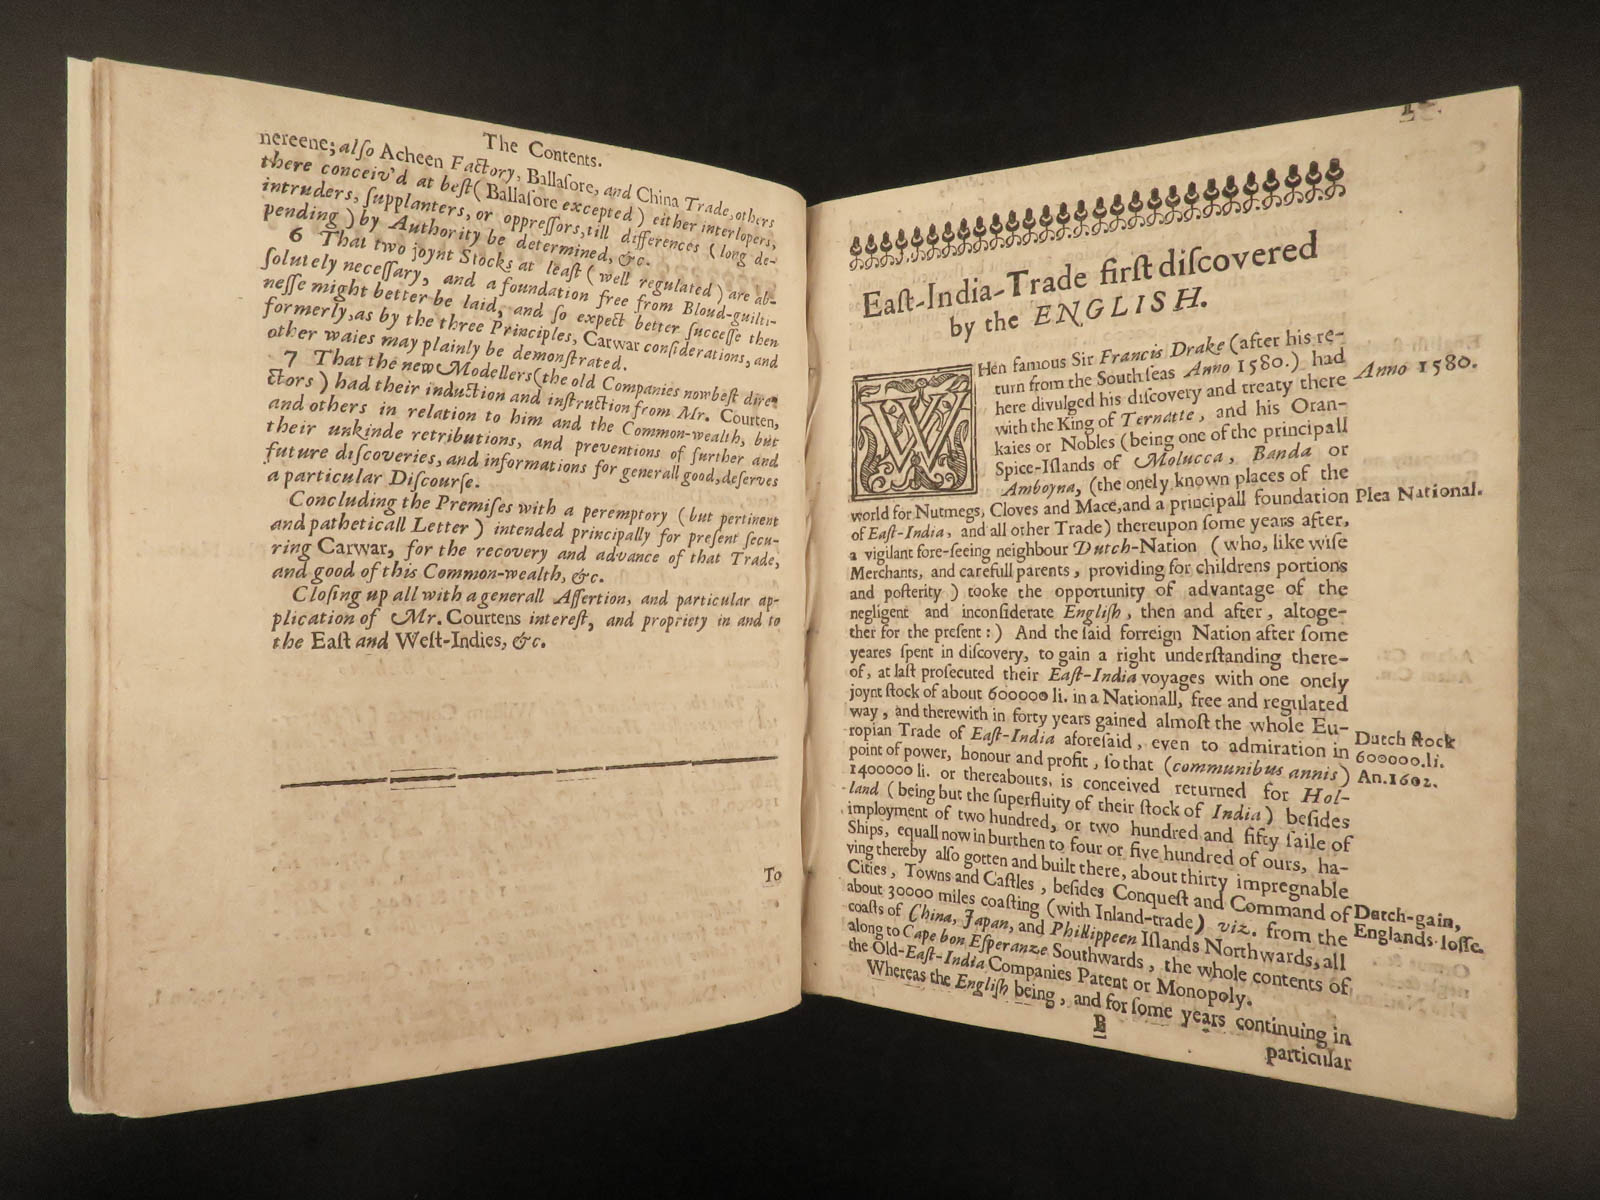 The Contents.
nereene; alſo Acheen Factory, Ballaſore, and China Trade, others
there conceiv'd at beſt ( Ballaſore excepted ) either interlopers,
intruders, ſupplanters, or oppreſſors, till differences ( long de-
pending ) by Authority be determined, &c.
6 That two joynt Stocks at leaſt ( well regulated ) are ab-
ſolutely neceſſary, and a foundation free from Bloud-guilti-
neſſe might better be laid, and ſo expect better ſucceſſe then
formerly, as by the three Principles, Carwar conſiderations, and
other waies may plainly be demonſtrated.
7 That the new Modellers (the old Companies now beſt dire-
ctors ) had their induction and inſtruction from Mr. Courten,
and others in relation to him and the Common-wealth, but
their unkinde retributions, and preventions of further and
future diſcoveries, and informations for generall good, deſerves
a particular Diſcourſe.
Concluding the Premiſes with a peremptory ( but pertinent
and patheticall Letter ) intended principally for preſent ſecu-
ring Carwar, for the recovery and advance of that Trade,
and good of this Common-wealth, &c.
Cloſing up all with a generall Aſſertion, and particular ap-
plication of Mr. Courtens intereſt, and propriety in and to
the Eaſt and Weſt-Indies, &c.
To
Eaſt-India-Trade firſt diſcovered
by the ENGLISH.
WHen famous Sir Francis Drake (after his re-
turn from the South ſeas Anno 1580.) had
here divulged his diſcovery and treaty there
with the King of Ternatte, and his Oran-
kaies or Nobles (being one of the principall
Spice-Iſlands of Molucca, Banda or
Amboyna, (the onely known places of the
world for Nutmegs, Cloves and Mace, and a principall foundation
of Eaſt-India, and all other Trade) thereupon some years after,
a vigilant fore-ſeeing neighbour Dutch-Nation (who, like wiſe
Merchants, and carefull parents, providing for childrens portions
and poſterity ) tooke the opportunity of advantage of the
negligent and inconſiderate Engliſh, then and after, altoge-
ther for the preſent:) And the ſaid forreign Nation after ſome
yeares ſpent in diſcovery, to gain a right underſtanding there-
of, at laſt proſecuted their Eaſt-India voyages with one onely
joynt ſtock of about 600000 li. in a Nationall, free and regulated
way, and therewith in forty years gained almoſt the whole Eu-
ropian Trade of Eaſt-India aforeſaid, even to admiration in
point of power, honour and profit, ſo that (communibus annis)
1400000 li. or thereabouts, is conceived returned for Hol-
land (being but the ſuperfluity of their ſtock of India) beſides
imployment of two hundred, or two hundred and fifty ſaile of
Ships, equall now in burthen to four or five hundred of ours, ha-
ving thereby alſo gotten and built there, about thirty impregnable
Cities, Towns and Caſtles, beſides Conqueſt and Command of
about 30000 miles coaſting (with Inland-trade) viz. from the
coaſts of China, Japan, and Phillippeen Iſlands Northwards, all
along to Cape bon Eſperanze Southwards, the whole contents of
the Old-Eaſt-India Companies Patent or Monopoly.
Whereas the Engliſh being, and for ſome years continuing in
B
particular
Anno 1580.
Plea National.
Dutch ſtock
600000.li.
An.1602.
Dutch-gain,
Englands loſſe.